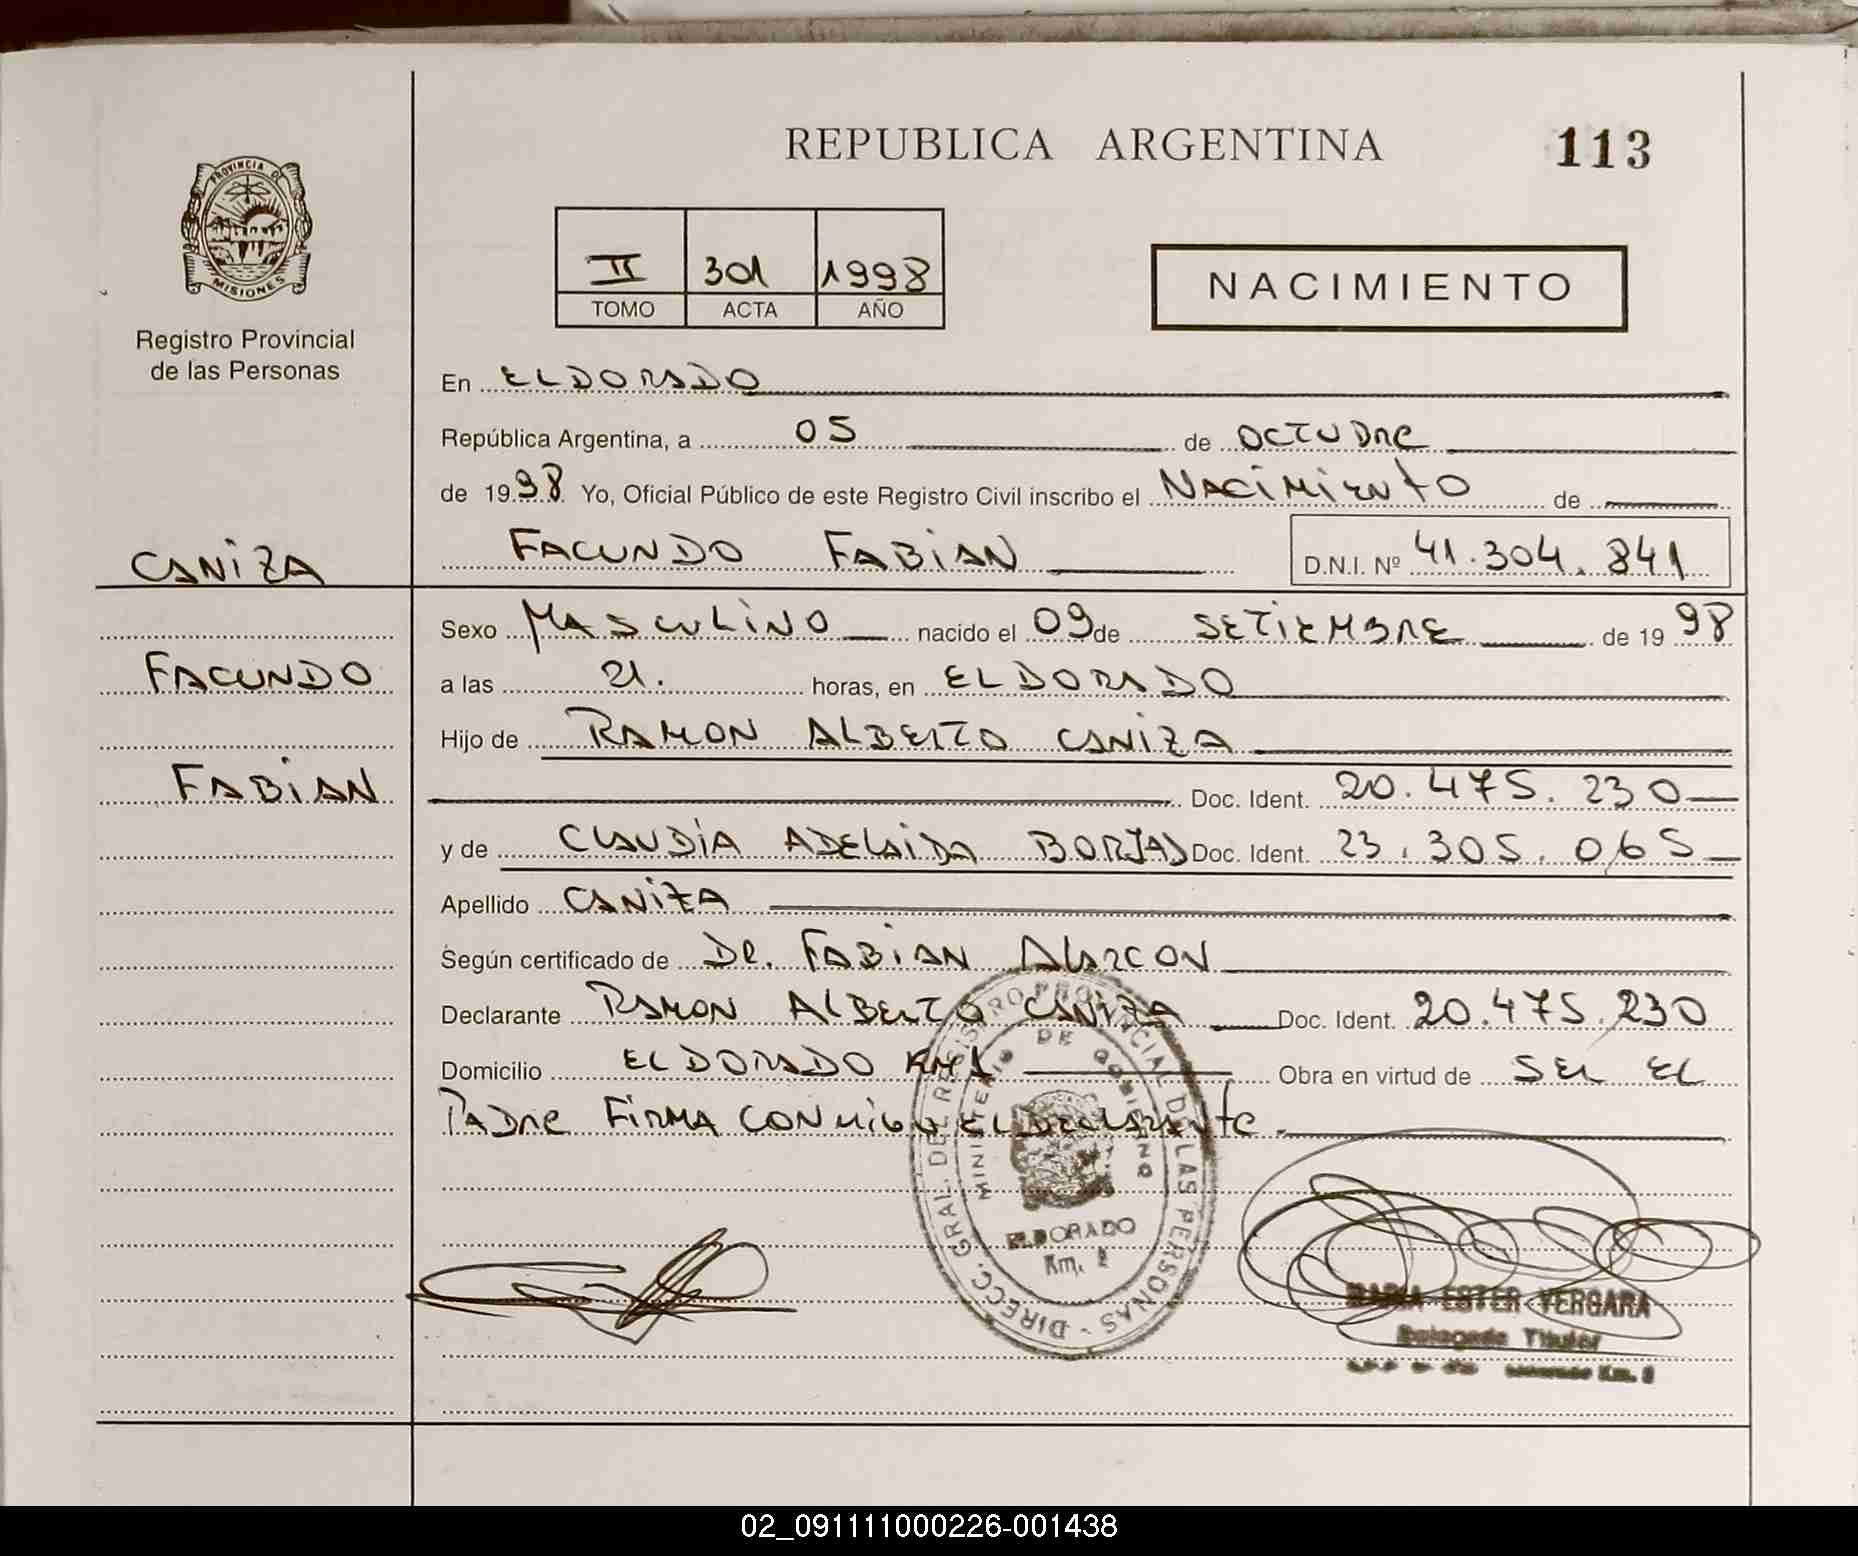 REPUBLICA ARGENTINA
113
PROVINCIA DE
MISIONES
Registro Provincial
de las Personas
II 301 1998
TOMO ACTA AÑO
NACIMIENTO
En ELDORADO
República Argentina, a 05 de OCTUBRE
de 1998. Yo, Oficial Público de este Registro Civil inscribo el NACIMIENTO de
CANIZA
FACUNDO FABIAN D.N.I. Nº 41.304.841
Sexo MASCULINO nacido el 09 de SETIEMBRE de 19 98
FACUNDO
a las 21. horas, en ELDORADO
Hijo de RAMON ALBERTO CANIZA
FABIAN
Doc. Ident. 20.475.230
y de CLAUDIA ADELAIDA BORJAS Doc. Ident. 23.305.065
Apellido CANIZA
Según certificado de DR. FABIAN ALARCON
Declarante RAMON ALBERTO CANIZA Doc. Ident. 20.475.230
Domicilio ELDORADO KM 1 Obra en virtud de SER EL
PADRE FIRMA CONMIGO EL DECLARANTE.
DIRECC. GRAL. DEL REGISTRO PROVINCIAL DE LAS PERSONAS -
MINISTERIO DE GOBIERNO
ELDORADO
Km.
MARIA ESTER VERGARA
Delegada Titular
Km.
02_091111000226-001438